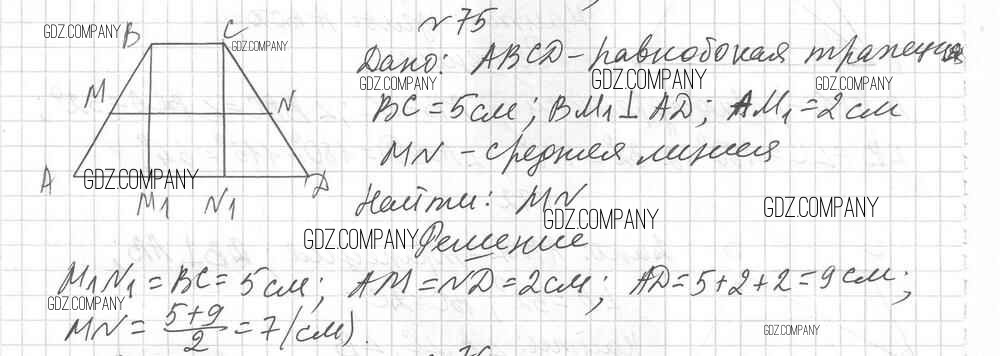 №75
Дано: ABCD – равнобокая трапеция
BC = 5 см; BM₁ ⊥ AD; AM₁ = 2 см
MN – средняя линия
Найти: MN
Решение
M₁N₁ = BC = 5 см; AM = ND = 2 см; AD = 5+2+2 = 9 см;
MN = (5+9)/2 = 7 (см).
B
C
M
N
A
M₁
N₁
D
GDZ.COMPANY
GDZ.COMPANY
GDZ.COMPANY
GDZ.COMPANY
GDZ.COMPANY
GDZ.COMPANY
GDZ.COMPANY
GDZ.COMPANY
GDZ.COMPANY
GDZ.COMPANY
GDZ.COMPANY